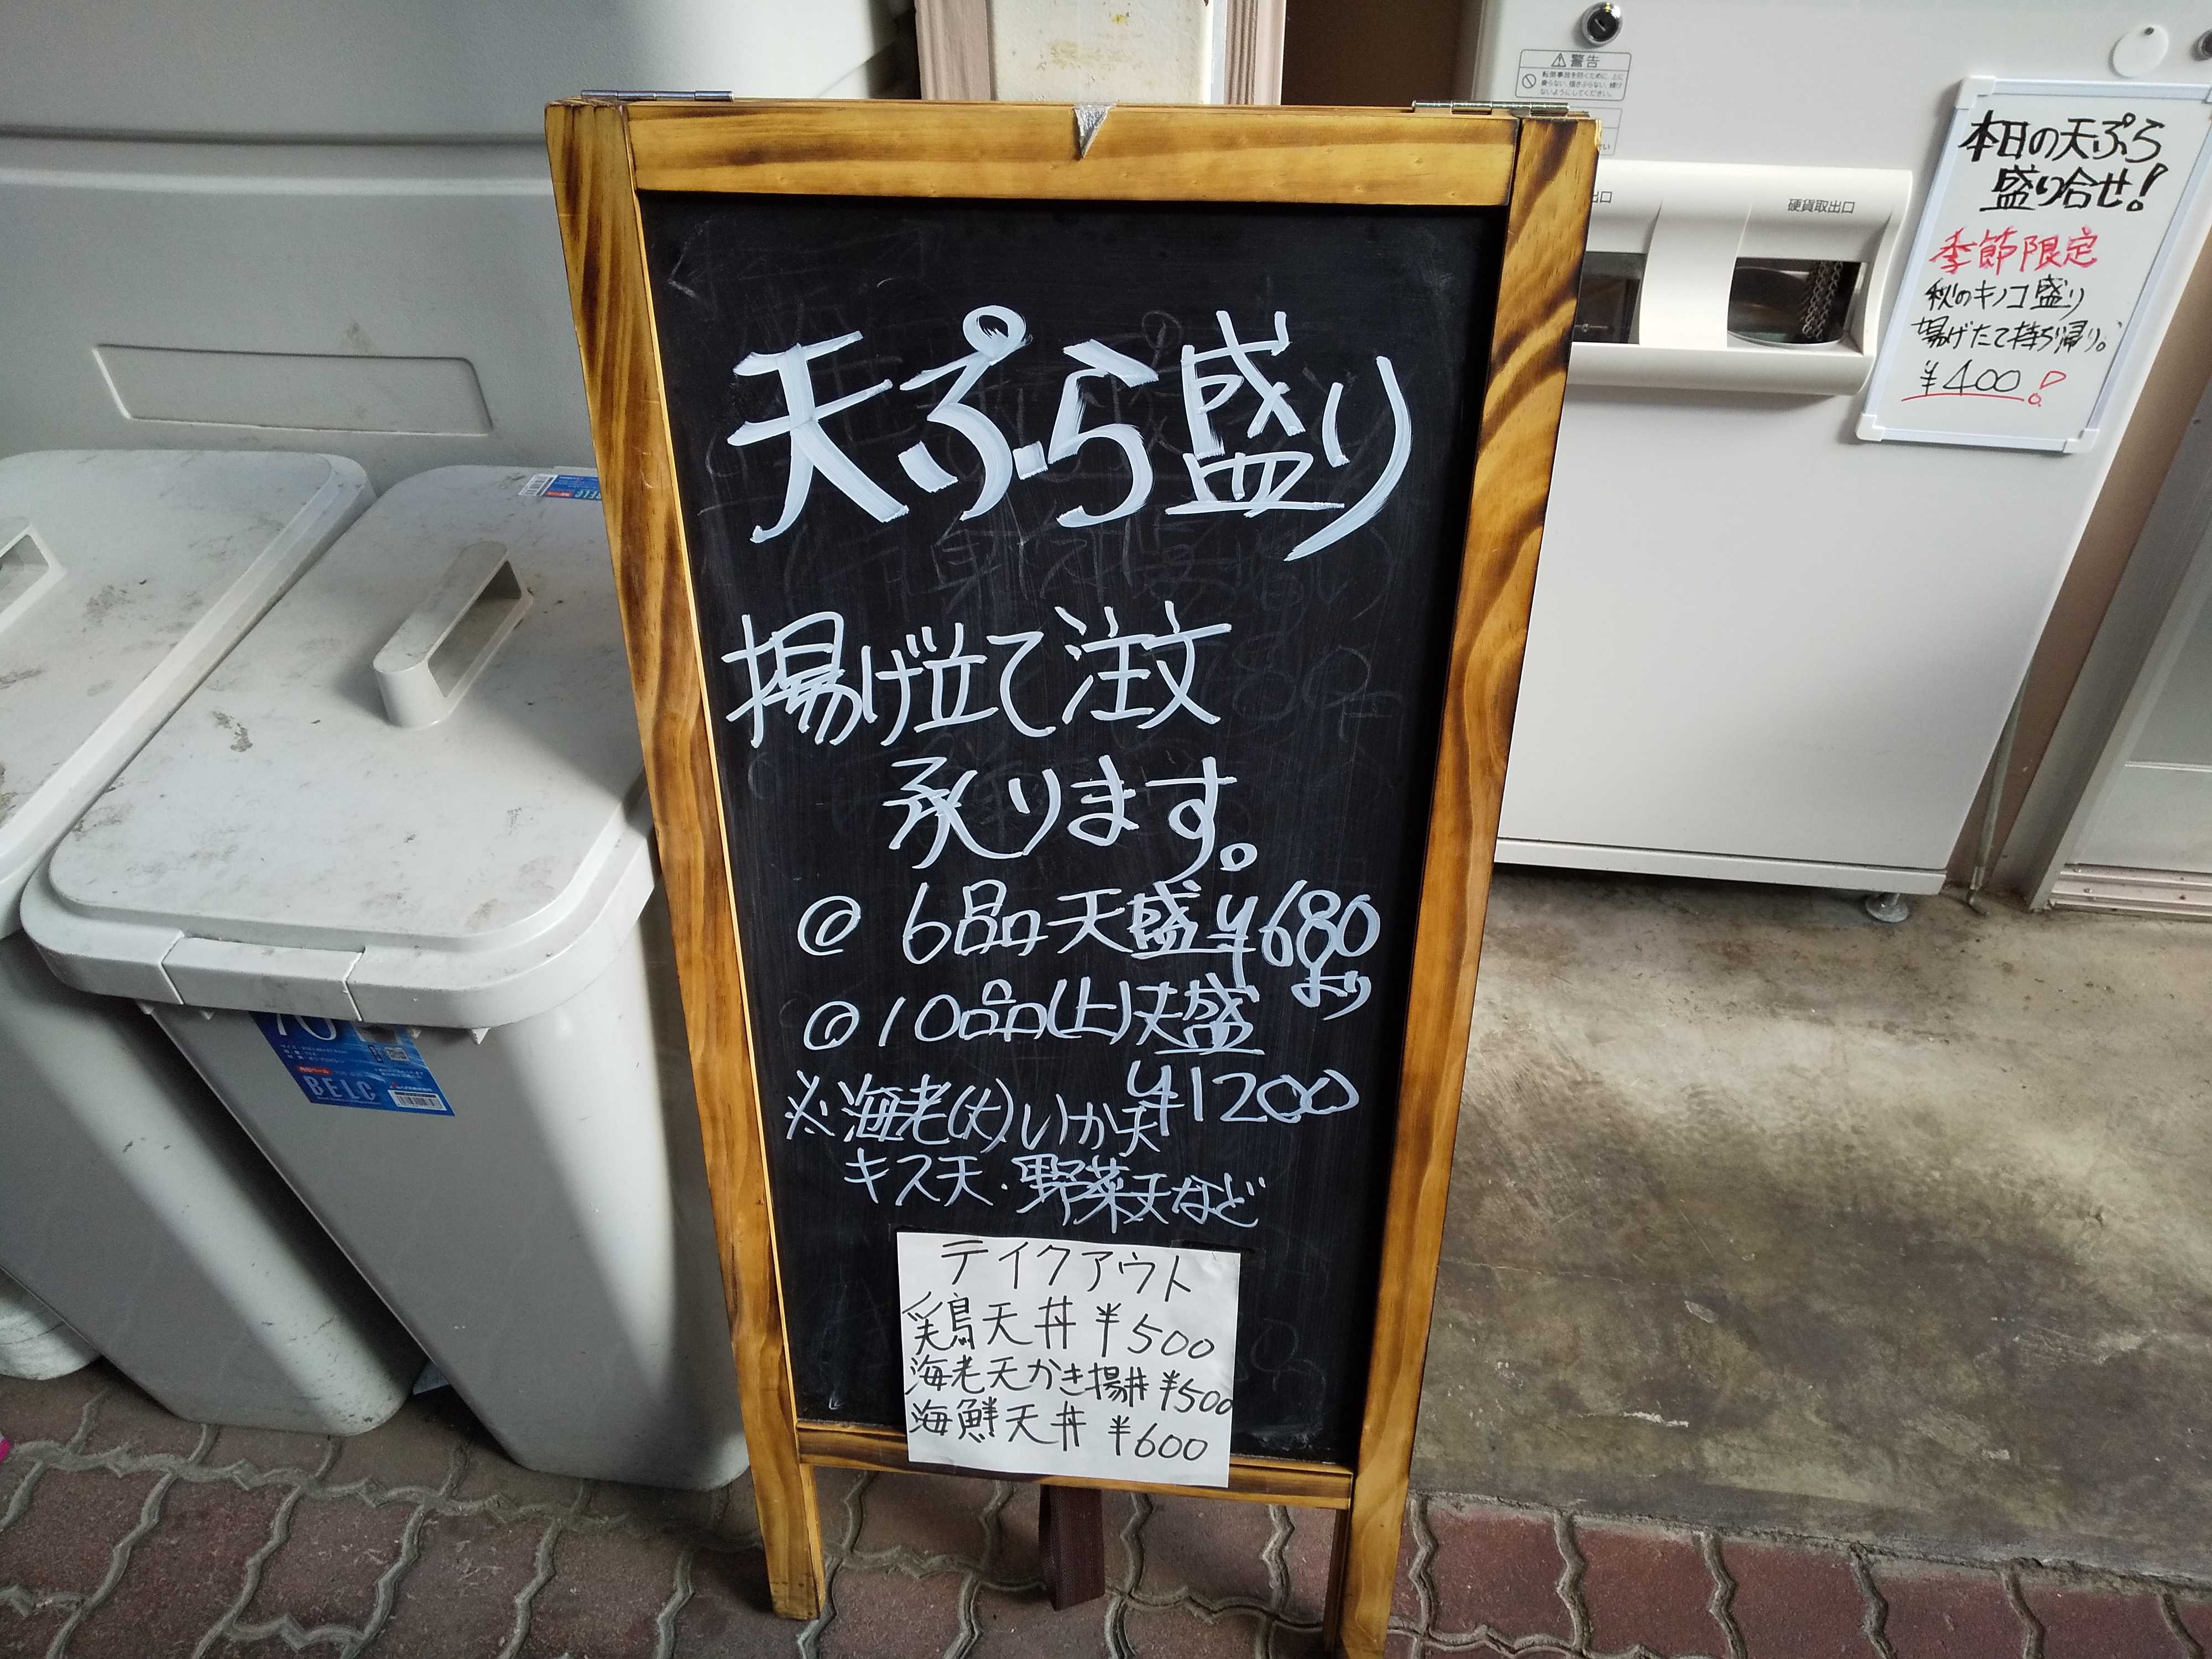 天ぷら盛り
揚げ立て注文
承ります。
@ 6品天盛¥680
より
@10品(上)天盛
¥1200
※海老(大)いか天
キス天・野菜天など
テイクアウト
鶏天丼 ¥500
海老天かき揚丼¥500
海鮮天丼 ¥600
本日の天ぷら
盛り合せ!
季節限定
秋のキノコ盛り
揚げたて持ち帰り。
¥400!
警告
硬貨取出口
BELC